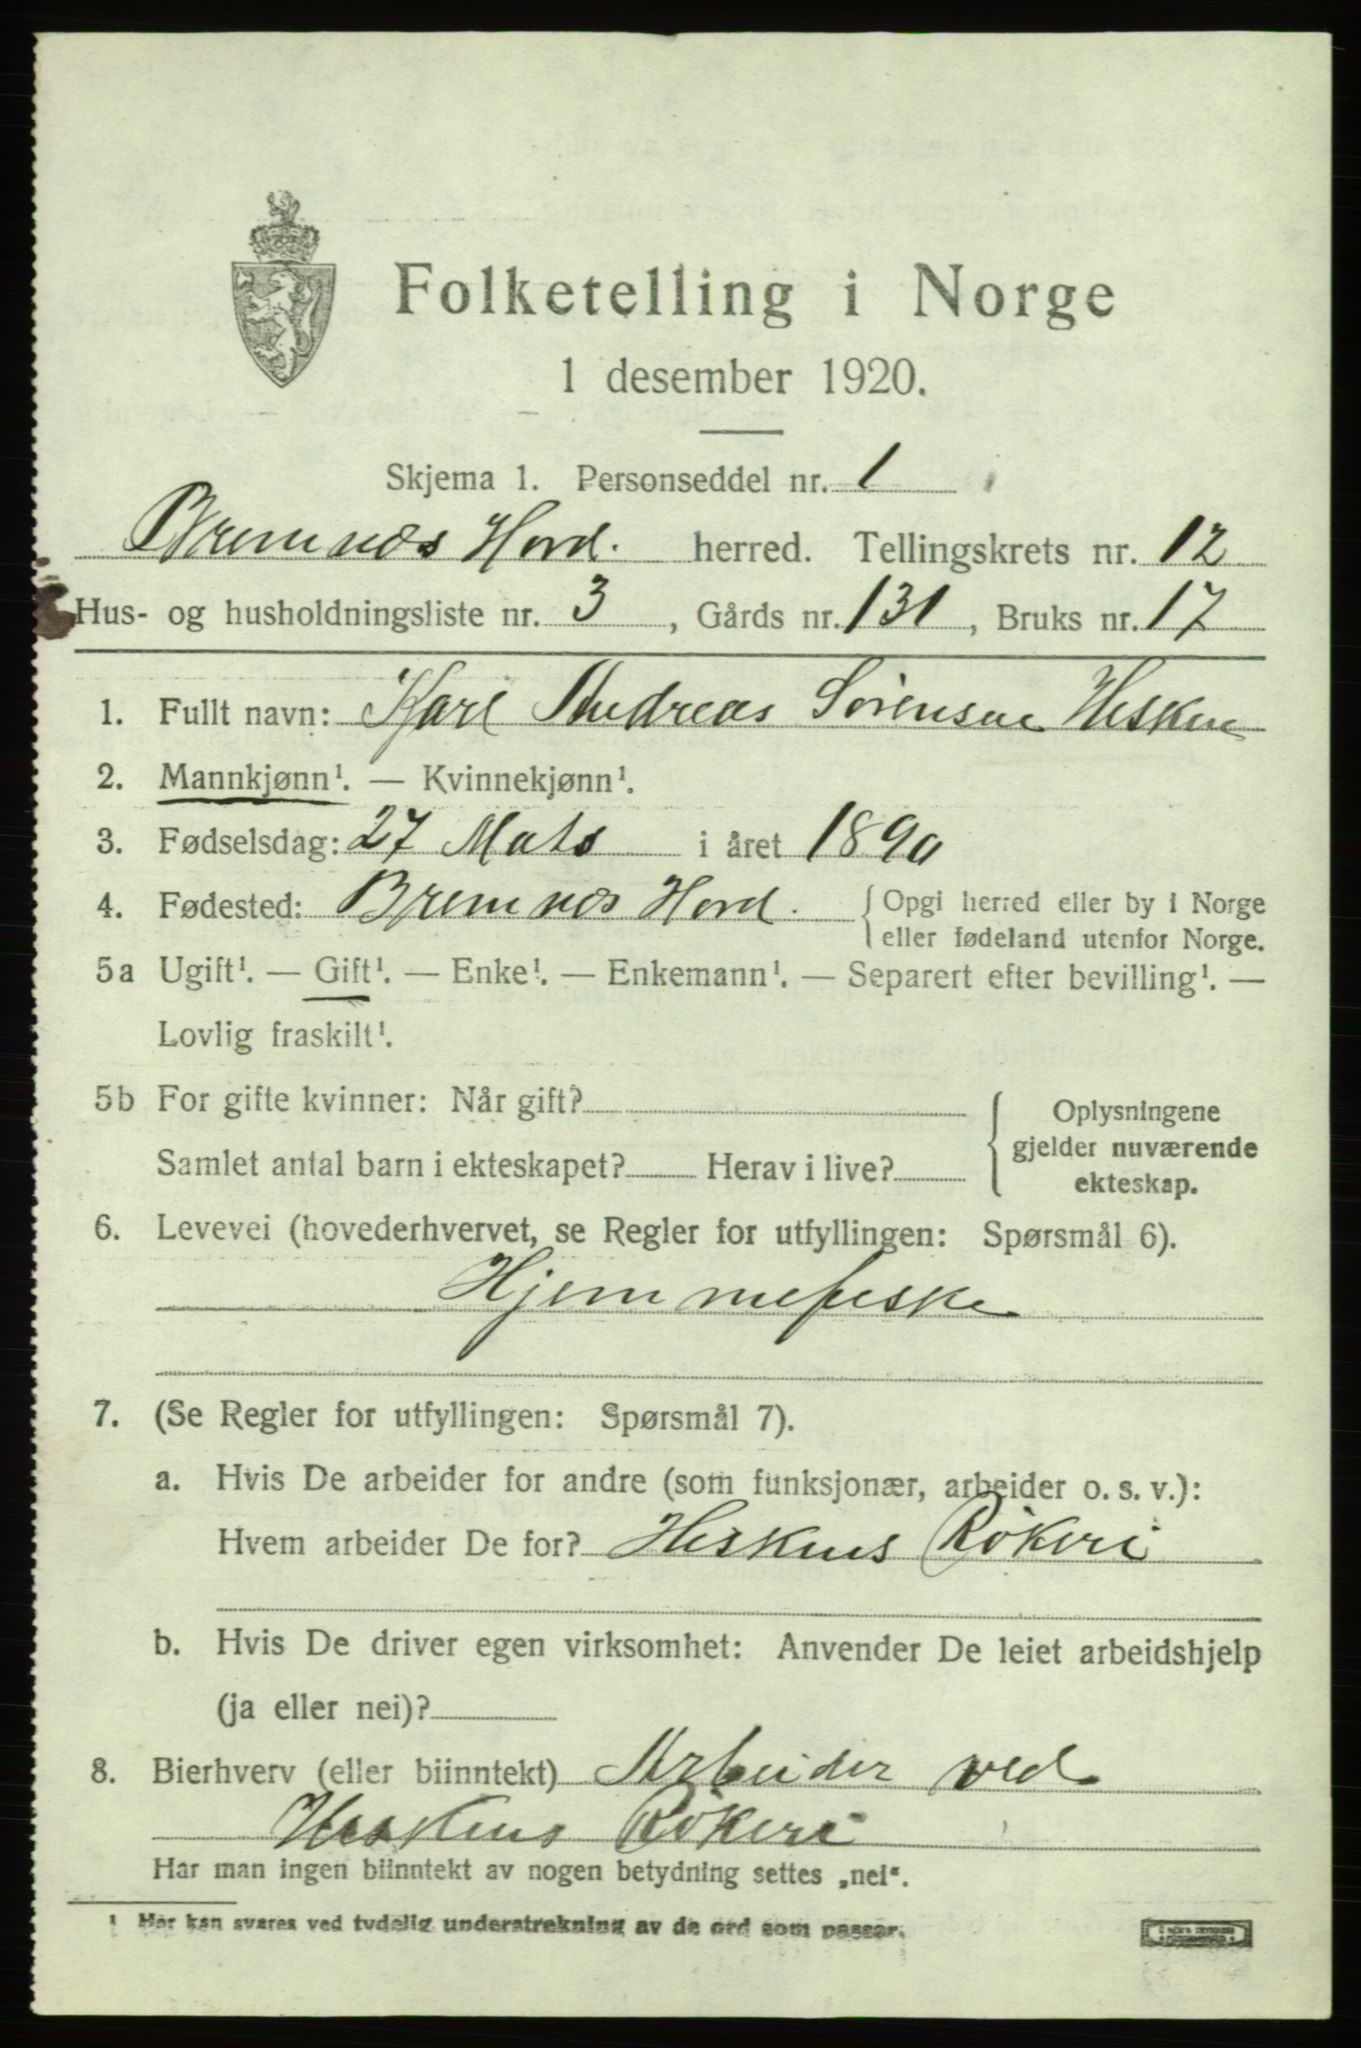 Folketelling i Norge
1 desember 1920.
Skjema 1. Personseddel nr. 1
Bremnæs Hord. herred. Tellingskrets nr. 12
Hus- og husholdningsliste nr. 3, Gårds nr. 131, Bruks nr. 17
1. Fullt navn: Karl Andreas Sørensen Hesken
2. Mannkjønn¹. — Kvinnekjønn¹.
3. Fødselsdag: 27 i året 1890
4. Fødested: Bremnæs Hord. { Opgi herred eller by i Norge
eller fødeland utenfor Norge.
5a Ugift¹. — Gift¹. — Enke¹. — Enkemann¹. — Separert efter bevilling¹. —
Lovlig fraskilt¹.
5b For gifte kvinner: Når gift?
Samlet antal barn i ekteskapet? Herav i live?
{ Oplysningene
gjelder nuværende
ekteskap.
6. Levevei (hovederhvervet, se Regler for utfyllingen: Spørsmål 6).
Hjemmefiske
7. (Se Regler for utfyllingen: Spørsmål 7).
a. Hvis De arbeider for andre (som funksjonær, arbeider o. s. v.):
Hvem arbeider De for? Heskens Røkeri
b. Hvis De driver egen virksomhet: Anvender De leiet arbeidshjelp
(ja eller nei)?
8. Bierhverv (eller biinntekt) Arbeider ved
Heskens Røkeri
Har man ingen biinntekt av nogen betydning settes „nei“.
¹ Her kan svares ved tydelig understrekning av de ord som passer.